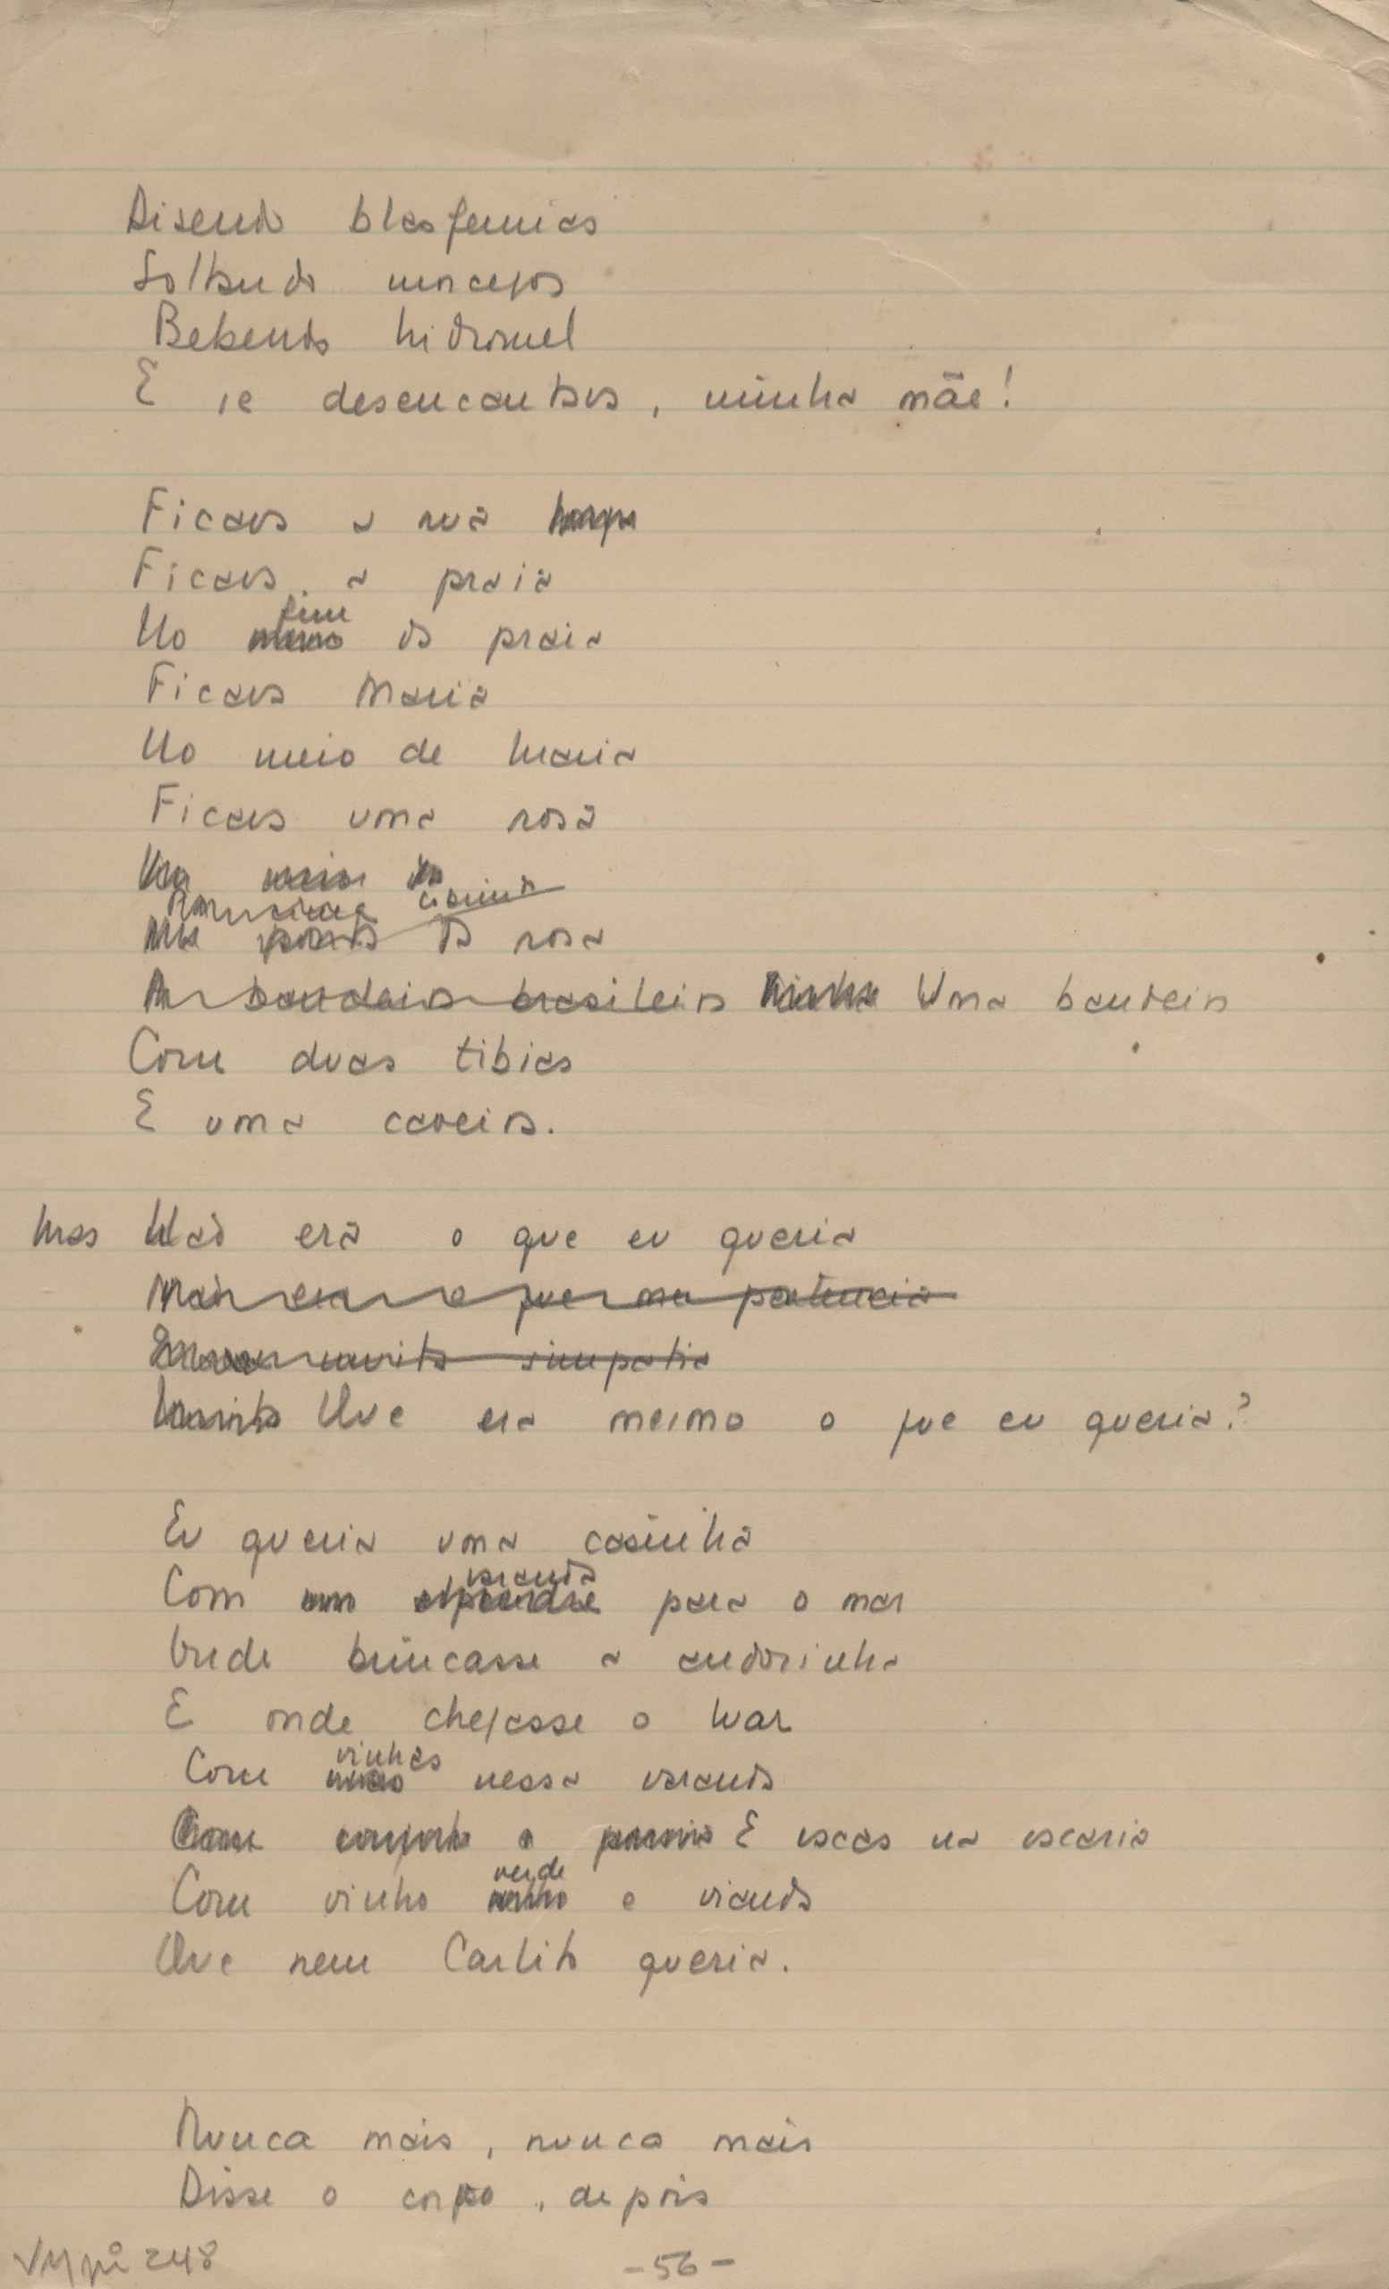 Disendo blasfemias
Soltando morcegos
Bebendo hidromel
E se desencantou, minha mãe!
Ficava a rua
Ficava a praia
No fim da praia
Ficava Maria
No meio de Maria
Ficava uma rosa
No meio da
da rosa
A bandeira brasileira Uma bandeira
Com duas tibias
E uma caveira.
Mas Não era o que eu queria
Não era o que me pertencia
muita simpatia
Que era mesmo o que eu queria?
Eu queria uma casinha
varanda
Com um alpendre para o mar
Onde brincasse a andorinha
E onde chegasse o luar
vinhas
Com nessa varanda
E vacas na vacaria
verde
Com vinho e vianda
Que nem Carlito queria.
Nunca mais, nunca mais
Disse o corpo, depois
VMpi 248
-56-